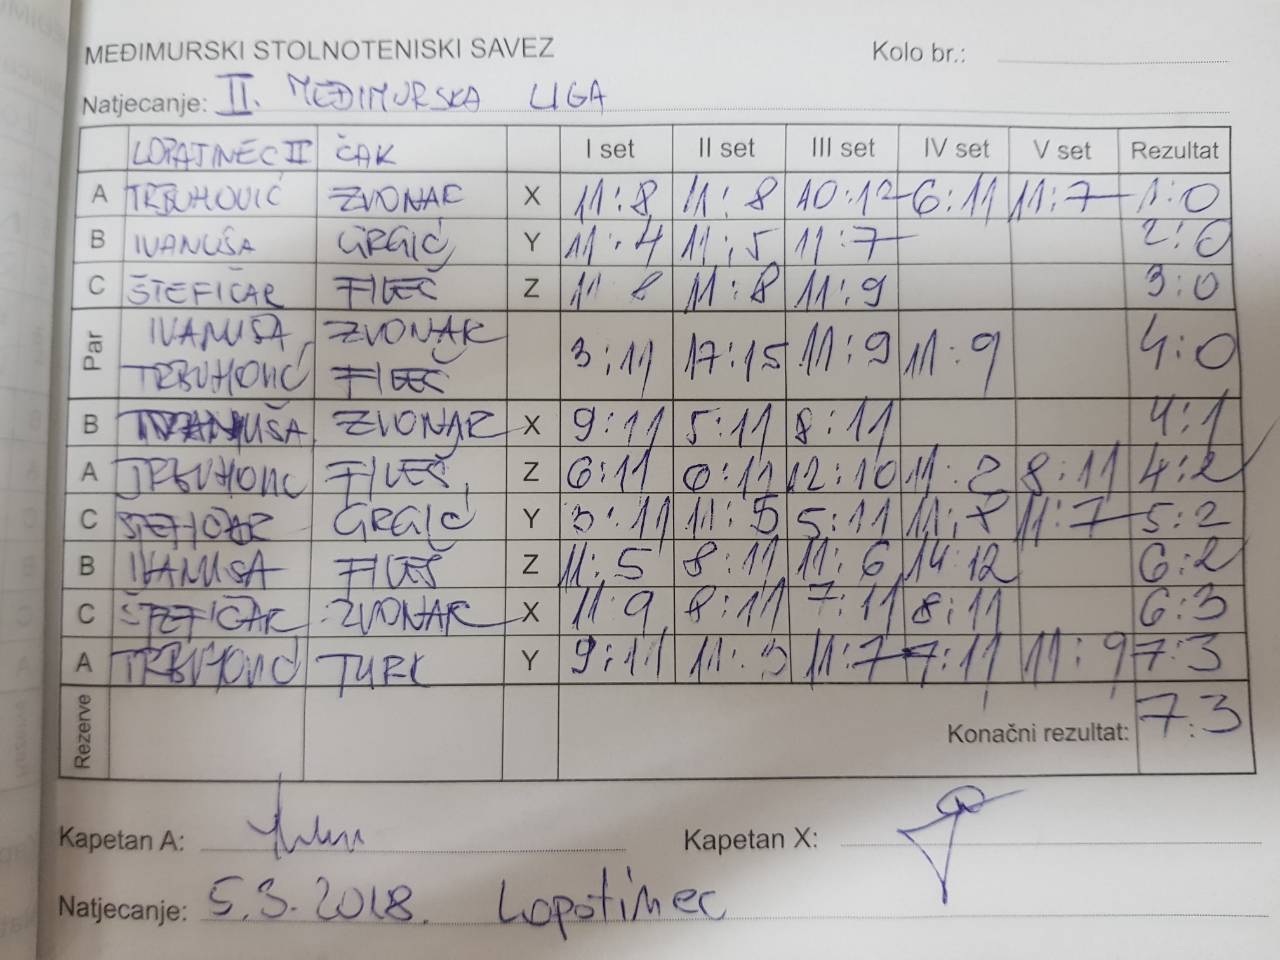 MEĐIMURSKI STOLNOTENISKI SAVEZ Kolo br.:
Natjecanje: II. MEĐIMURSKA LIGA
LOPATINEC II ČAK I set II set III set IV set V set Rezultat
A TRBUHOVIĆ ZVONAR X 11:8 11:8 10:12 6:11 11:7 1:0
B IVANUŠA GRGIĆ Y 11:4 11:5 11:7 2:0
C ŠTEFIČAR FILEŠ Z 11 8 11:8 11:9 3:0
Par IVANUŠA, ZVONAR 3:11 17:15 11:9 11:9 4:0
TRBUHOVIĆ FILEŠ
B IVANUŠA ZVONAR X 9:11 5:11 8:11 4:1
A TRBUHOVIĆ FILEŠ Z 6:11 0:11 12:10 11:2 8:11 4:2
C ŠTEFIČAR GRGIĆ Y 3:11 11:5 5:11 11:8 11:7 5:2
B IVANUSA FILEŠ Z 11:5 8:11 11:6 14:12 6:2
C ŠTEFIČAR ZVONAR X 11:9 8:11 7:11 8:11 6:3
A TRBUHOVIĆ TURK Y 9:11 11:3 11:7 7:11 11:9 7:3
Rezerve Konačni rezultat: 7:3
Kapetan A: Kapetan X:
Natjecanje: 5.3.2018. Lopatinec